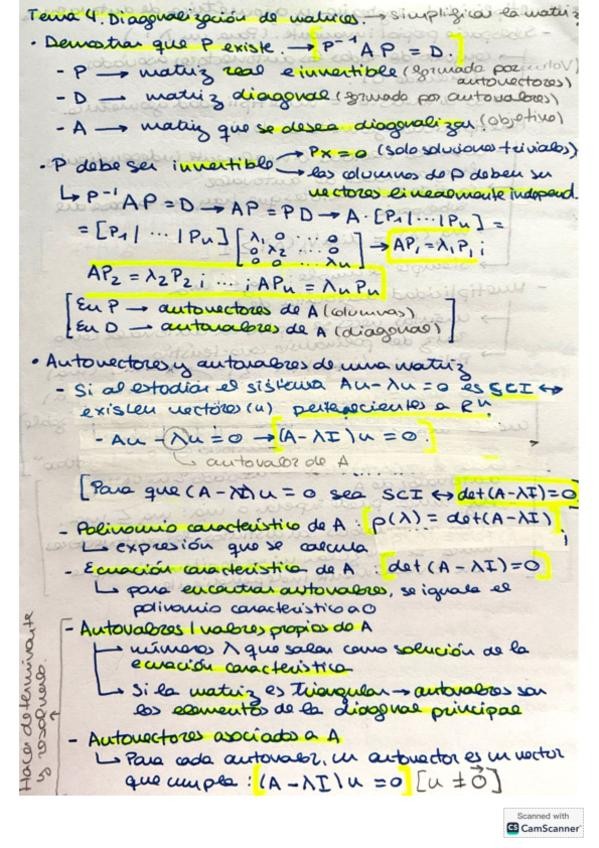 Tema 4. Diagonalización de matrices. → simplificar la matriz
• Demostrar que P existe. → P⁻¹ A P = D.
- P → matriz real e invertible (formada por autovectores)
- D → matriz diagonal (formada por autovalores)
- A → matriz que se desea diagonalizar (objetivo)
• P debe ser invertible → Px = 0 (solo soluciones triviales)
→ las columnas de P deben ser
vectores linealmente independ.
↳ P⁻¹AP = D → AP = PD → A · [P₁ | ... | Pn] =
= [P₁ | ... | Pn] [λ₁ 0 ... 0
0 λ₂ ... 0
0 0 ... λn] → AP₁ = λ₁P₁ ;
AP₂ = λ₂P₂ ; ... ; APn = λnPn
[En P → autovectores de A (columnas)
En D → autovalores de A (diagonal)]
• Autovectores y autovalores de una matriz
- Si al estudiar el sistema Au - λu = 0 es SCI ↔
existen vectores (u) pertenecientes a Rⁿ.
- Au - λu = 0 → (A - λI)u = 0.
↳ autovalor de A
[Para que (A - λI)u = 0 sea SCI ↔ det(A - λI) = 0
- Polinomio característico de A : p(λ) = det(A - λI)
↳ expresión que se calcula
- Ecuación característica de A : det(A - λI) = 0
↳ para encontrar autovalores, se iguala el
polinomio característico a 0
Hacer determinante
y resolverlo.
- Autovalores / valores propios de A
↳ números λ que salen como solución de la
ecuación característica
↳ Si la matriz es Triangular → autovalores son
los elementos de la diagonal principal
- Autovectores asociados a A
↳ Para cada autovalor, un autovector es un vector
que cumpla : (A - λI)u = 0 [u ≠ 0⃗]
Scanned with
CS CamScanner